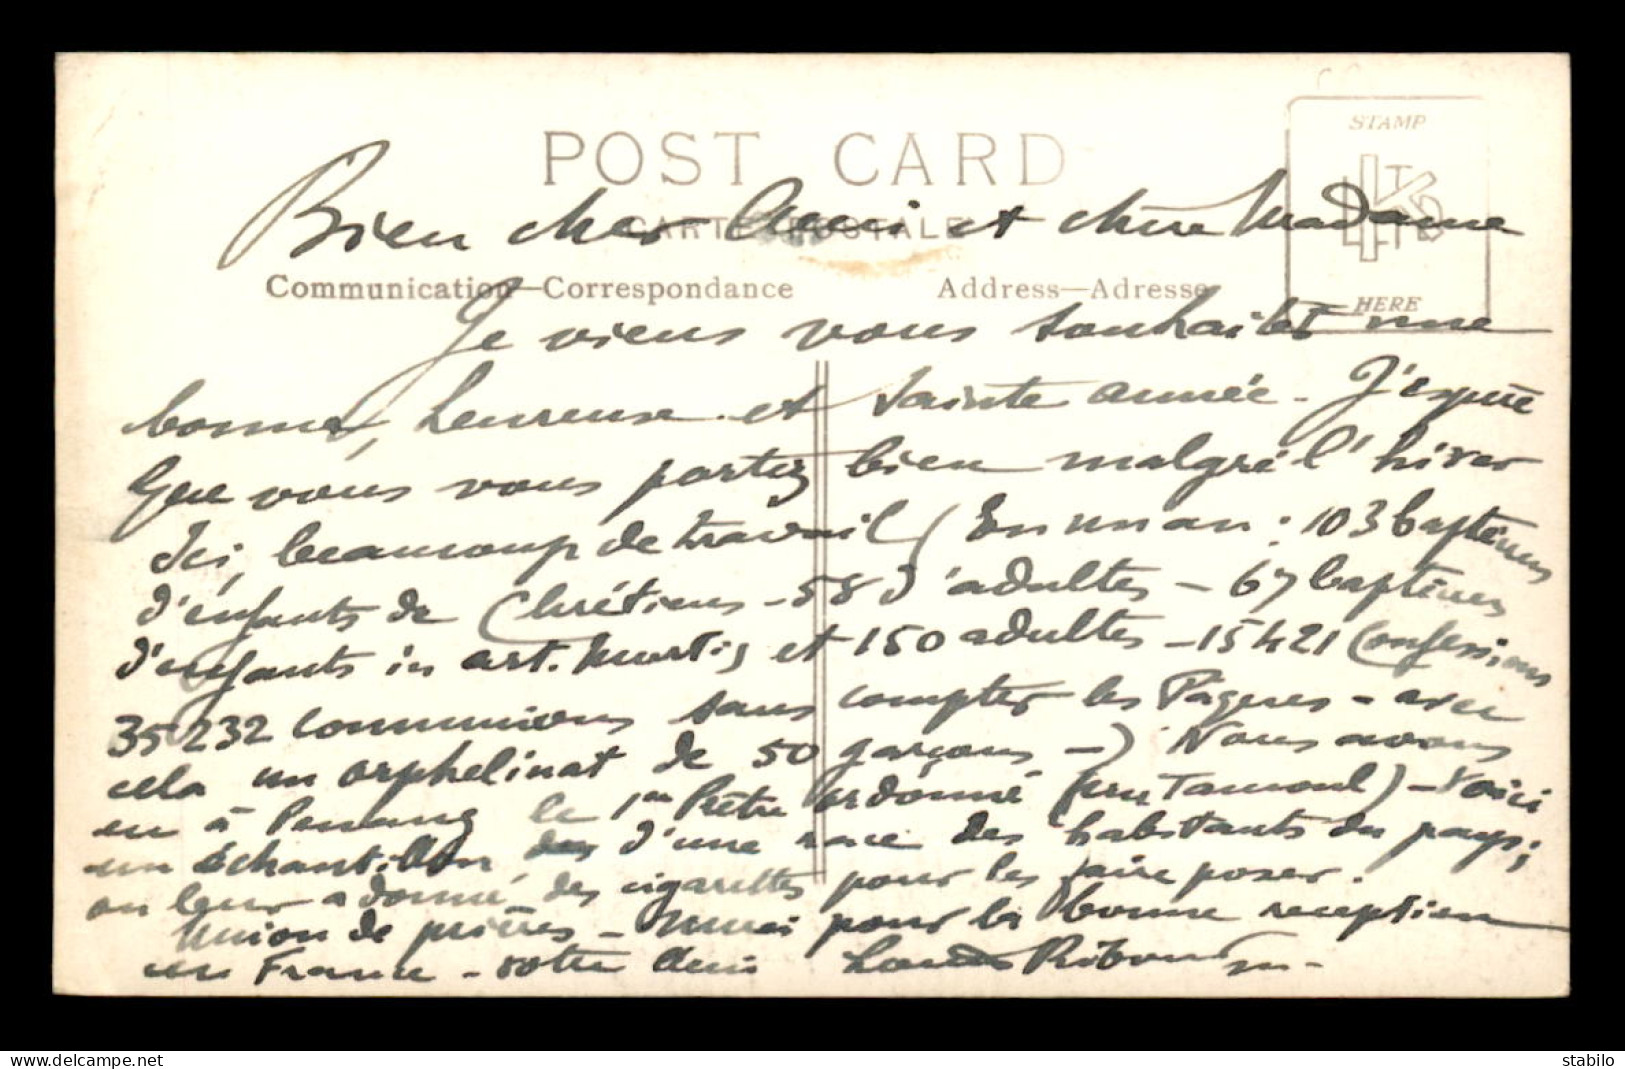 POST CARD
STAMP
HERE
CARTE POSTALE
Communication—Correspondance
Address—Adresse
Bien cher Ami et chère Madame
Je viens vous souhaiter une
bonne, heureuse et sainte année - J'espère
que vous vous portez bien malgré l'hiver
Ici, beaucoup de travail (En un an : 103 baptêmes
d'enfants de Chrétiens - 58 d'adultes - 67 baptêmes
d'enfants in art. Mortis et 150 adultes - 15421 Confessions
35232 communions sans compter les Pâques - avec
cela un orphelinat de 50 garçons -) Nous avons
eu à Penang le 1er Prêtre ordonné (pur Tamoul) - Voici
un échantillon d'une race des habitants du pays;
on leur a donné des cigarettes pour les faire poser.
Union de prières - Merci pour la bonne reception
en France - votre Ami Louis